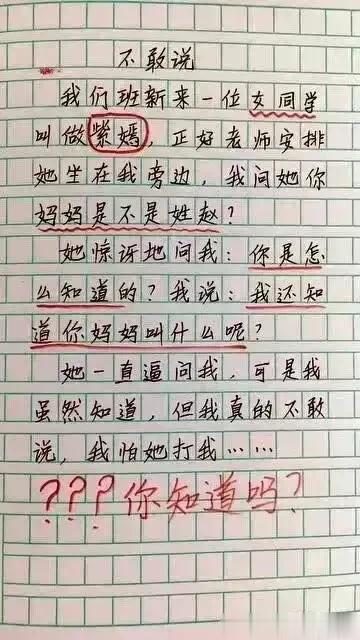 不敢说
我们班新来一位女同学
叫做紫嫣，正好老师安排
她坐在我旁边，我问她你
妈妈是不是姓赵？
她惊讶地问我：你是怎
么知道的？我说：我还知
道你妈妈叫什么呢？
她一直逼问我，可是我
虽然知道，但我真的不敢
说，我怕她打我……
???你知道吗?